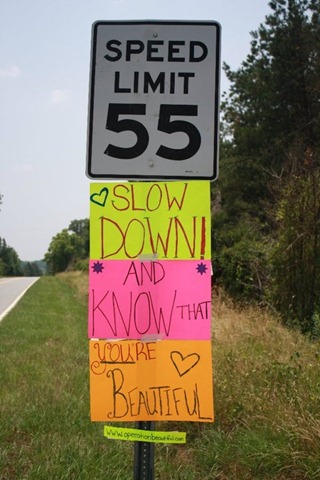 SPEED
LIMIT
55
SLOW
DOWN!
AND
KNOW THAT
YOU'RE
BEAUTIFUL
www.operationbeautiful.com